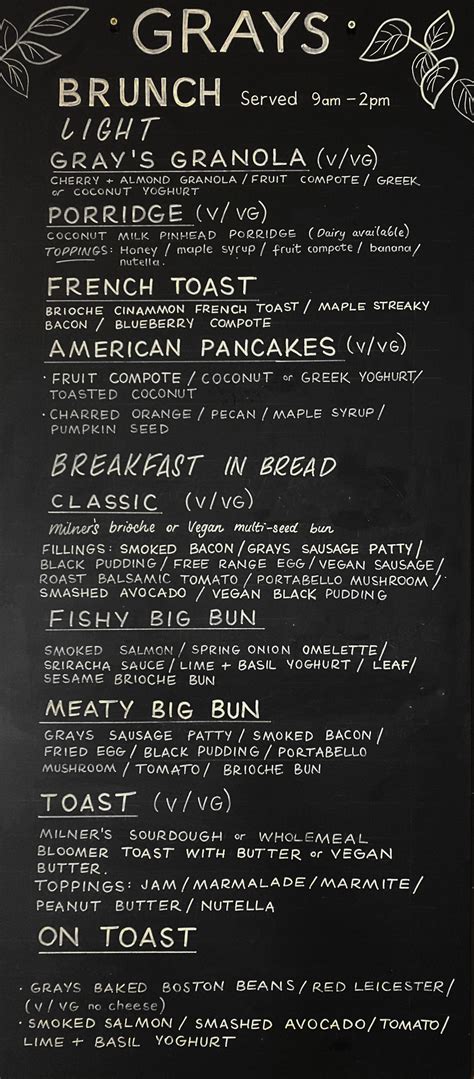 · GRAYS ·
BRUNCH Served 9am - 2pm
LIGHT
GRAY'S GRANOLA (V/VG)
CHERRY + ALMOND GRANOLA / FRUIT COMPOTE / GREEK
or COCONUT YOGHURT
PORRIDGE (V/VG)
COCONUT MILK PINHEAD PORRIDGE (Dairy available)
TOPPINGS: Honey / maple syrup / fruit compote / banana /
nutella.
FRENCH TOAST
BRIOCHE CINAMMON FRENCH TOAST / MAPLE STREAKY
BACON / BLUEBERRY COMPOTE
AMERICAN PANCAKES (V/VG)
· FRUIT COMPOTE / COCONUT or GREEK YOGHURT /
TOASTED COCONUT
· CHARRED ORANGE / PECAN / MAPLE SYRUP /
PUMPKIN SEED
BREAKFAST IN BREAD
CLASSIC (V/VG)
Milner's brioche or Vegan multi-seed bun
FILLINGS: SMOKED BACON / GRAYS SAUSAGE PATTY /
BLACK PUDDING / FREE RANGE EGG / VEGAN SAUSAGE /
ROAST BALSAMIC TOMATO / PORTABELLO MUSHROOM /
SMASHED AVOCADO / VEGAN BLACK PUDDING
FISHY BIG BUN
SMOKED SALMON / SPRING ONION OMELETTE /
SRIRACHA SAUCE / LIME + BASIL YOGHURT / LEAF /
SESAME BRIOCHE BUN
MEATY BIG BUN
GRAYS SAUSAGE PATTY / SMOKED BACON /
FRIED EGG / BLACK PUDDING / PORTABELLO
MUSHROOM / TOMATO / BRIOCHE BUN
TOAST (V/VG)
MILNER'S SOURDOUGH or WHOLEMEAL
BLOOMER TOAST WITH BUTTER or VEGAN
BUTTER.
TOPPINGS: JAM / MARMALADE / MARMITE /
PEANUT BUTTER / NUTELLA
ON TOAST
· GRAYS BAKED BOSTON BEANS / RED LEICESTER /
(V/VG no cheese)
· SMOKED SALMON / SMASHED AVOCADO / TOMATO /
LIME + BASIL YOGHURT